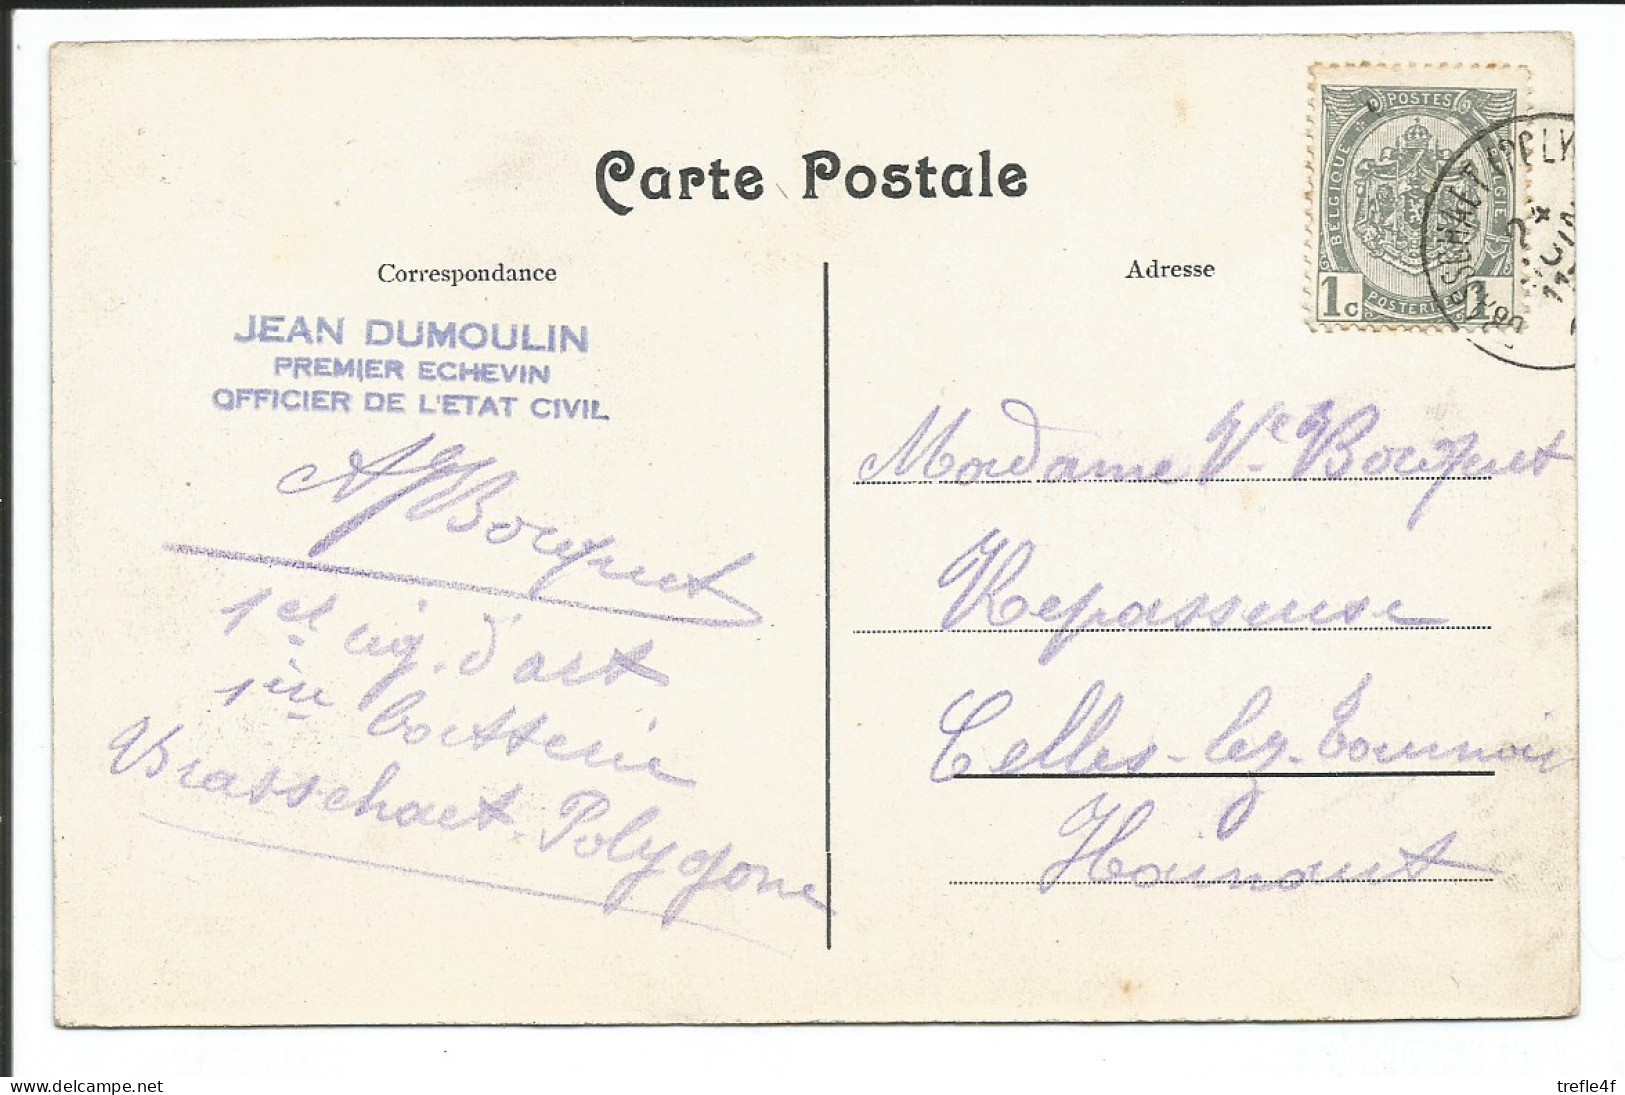 Carte Postale
Correspondance
JEAN DUMOULIN
PREMIER ECHEVIN
OFFICIER DE L'ETAT CIVIL
A Bouquet
1er rég. d'art
1ère batterie
Brasschaet-Polygone
Adresse
POSTES
BELGIQUE
1c
1
24 JUIN
11
Madame Ve Bouquet
Repasseuse
Celles-lez-Tournai
Hainaut
trefle4f
delcampe.net